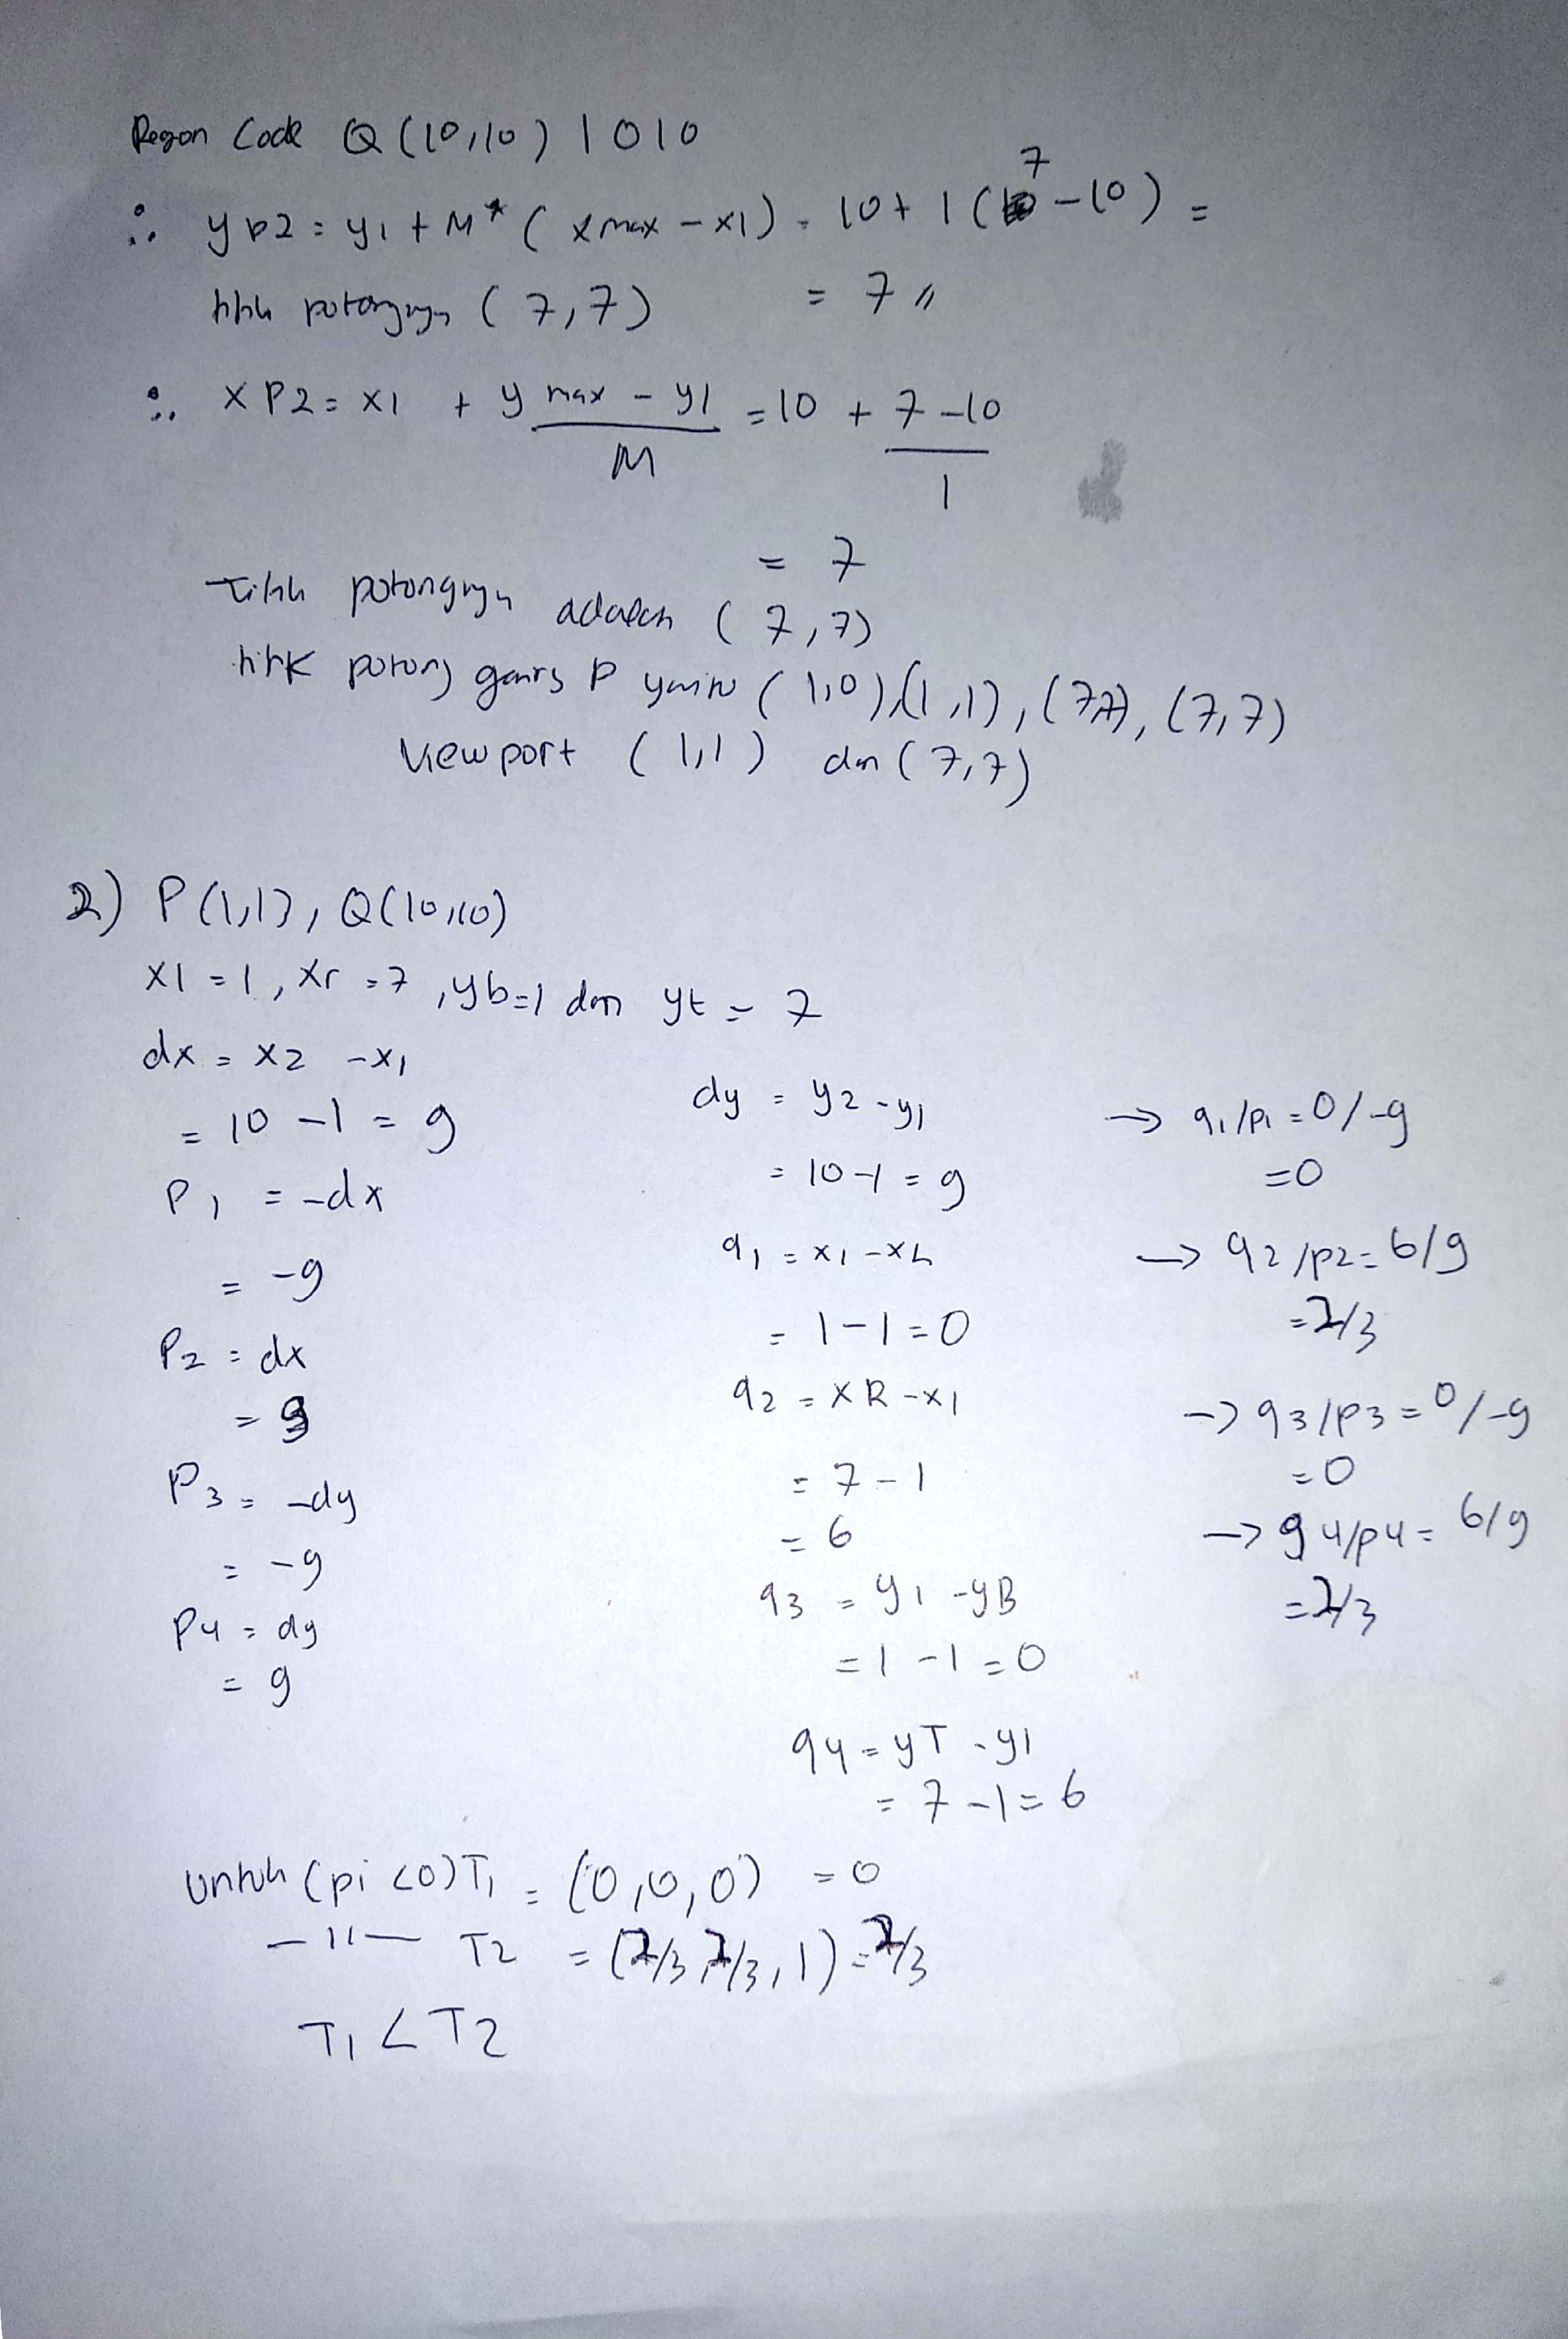 Region Code Q (10,10) 1010
∴ yp2 = y1 + M * (xmax - x1) = 10 + 1 (7 - 10) =
titik potongnya (7,7) = 7 //
∴ xp2 = x1 + y max - y1 / M = 10 + 7 - 10 / 1
= 7
Titik potongnya adalah (7,7)
titik potong garis P yaitu (1,0), (1,1), (7,7), (7,7)
Viewport (1,1) dan (7,7)
2) P (1,1), Q (10,10)
xl = 1, xr = 7, yb = 1 dan yt = 7
dx = x2 - x1
= 10 - 1 = 9
P1 = -dx
= -9
P2 = dx
= 9
P3 = -dy
= -9
P4 = dy
= 9
dy = y2 - y1
= 10 - 1 = 9
q1 = x1 - xL
= 1 - 1 = 0
q2 = xR - x1
= 7 - 1
= 6
q3 = y1 - yB
= 1 - 1 = 0
q4 = yT - y1
= 7 - 1 = 6
→ q1/p1 = 0/-9
= 0
→ q2/p2 = 6/9
= 2/3
→ q3/p3 = 0/-9
= 0
→ q4/p4 = 6/9
= 2/3
Untuk (pi <0) T1 = (0,0,0) = 0
— 11 — T2 = (2/3, 2/3, 1) = 2/3
T1 < T2